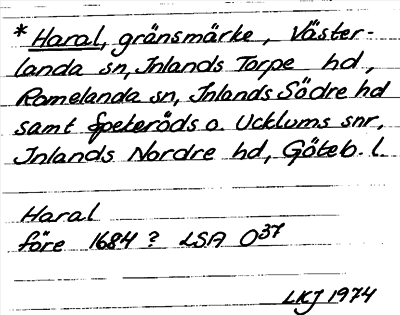 * Haral, gränsmärke, Väster-
landa sn, Inlands Torpe hd,
Romelanda sn, Inlands Södre hd
samt Spekeröds o. Ucklums snr,
Inlands Nordre hd, Göteb. l.
Haral
före 1684? LSA O37
LKJ 1974